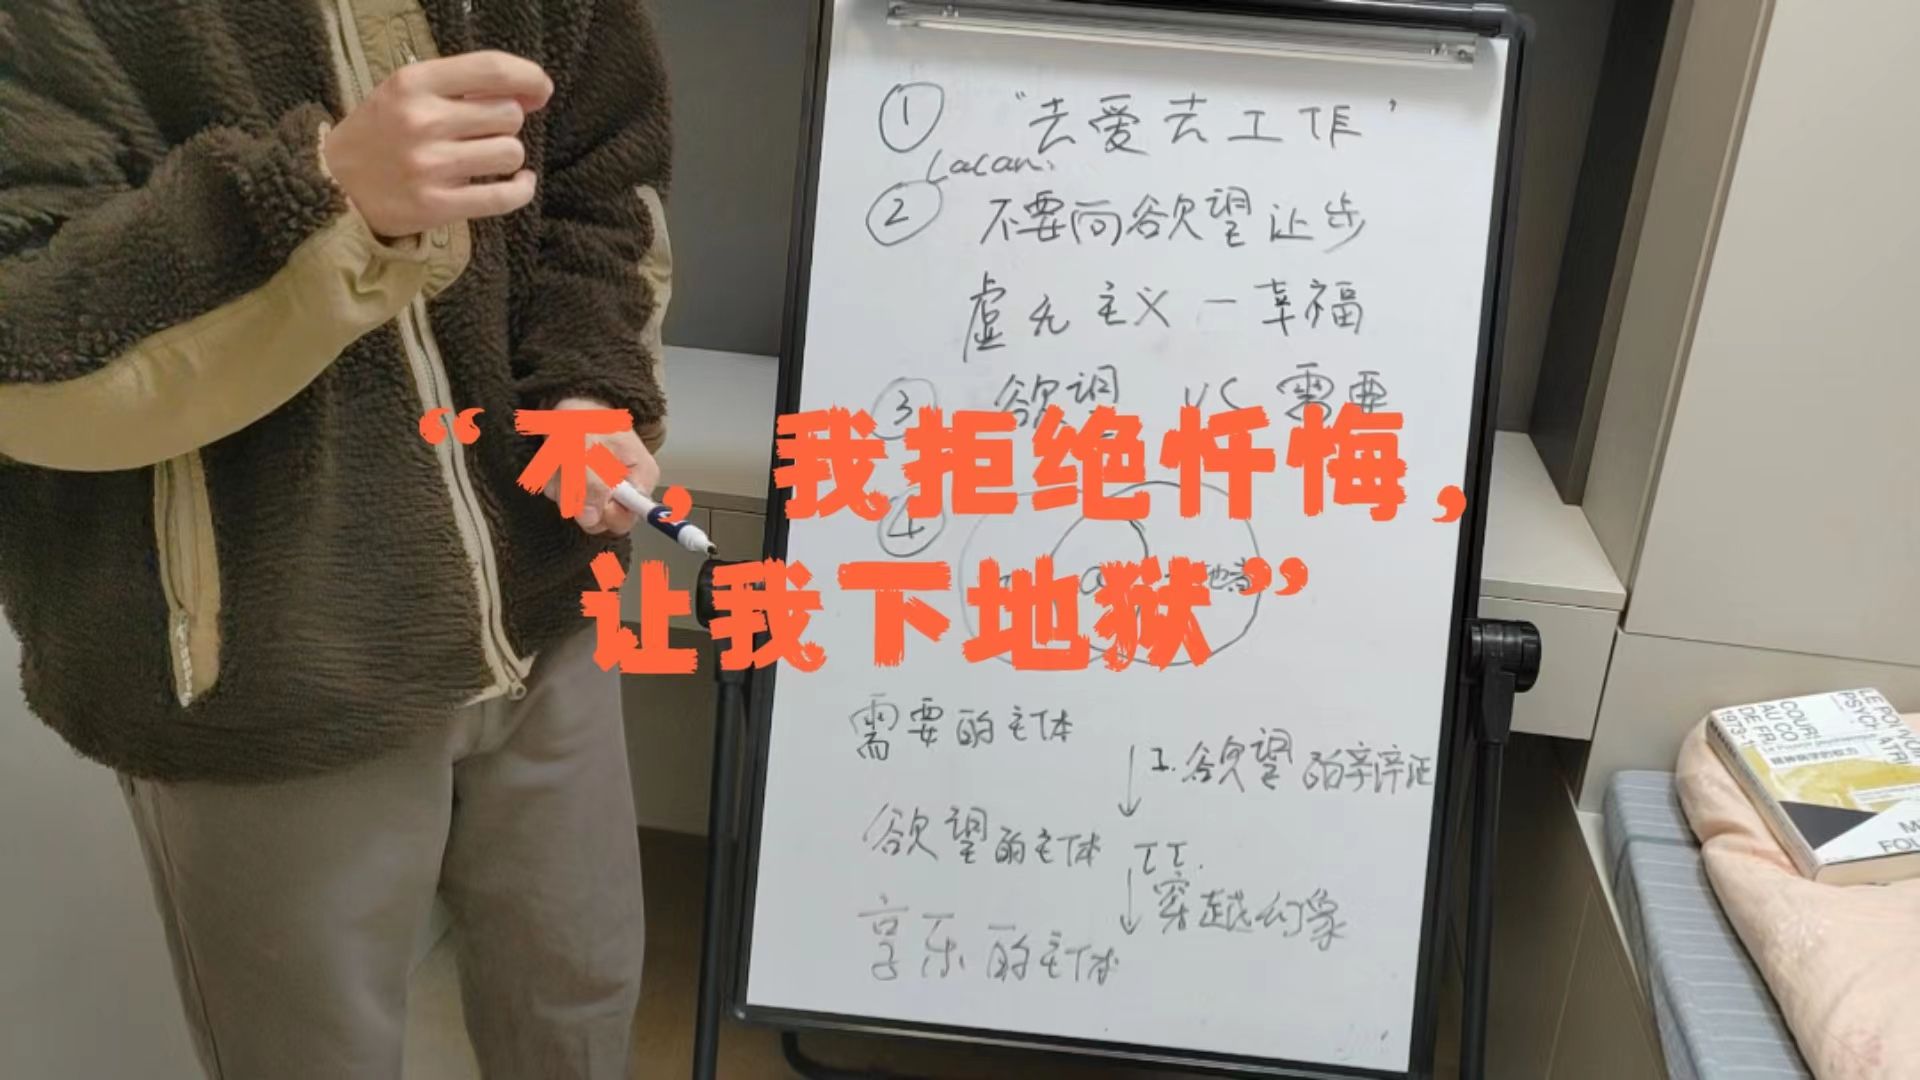 ① "去爱去工作"
Lacan.
② 不要向欲望让步
虚无主义—幸福
③ 欲望 VS 需要
“不，我拒绝忏悔，
④
让我下地狱”
需要的主体
I.欲望的辩证
欲望的主体
II.
穿越幻象
享乐的主体
LE POUVOIR
PSYCHIATRI
COUR
AU CO
DE FR
1973-
精神病学的权力
M
FOU